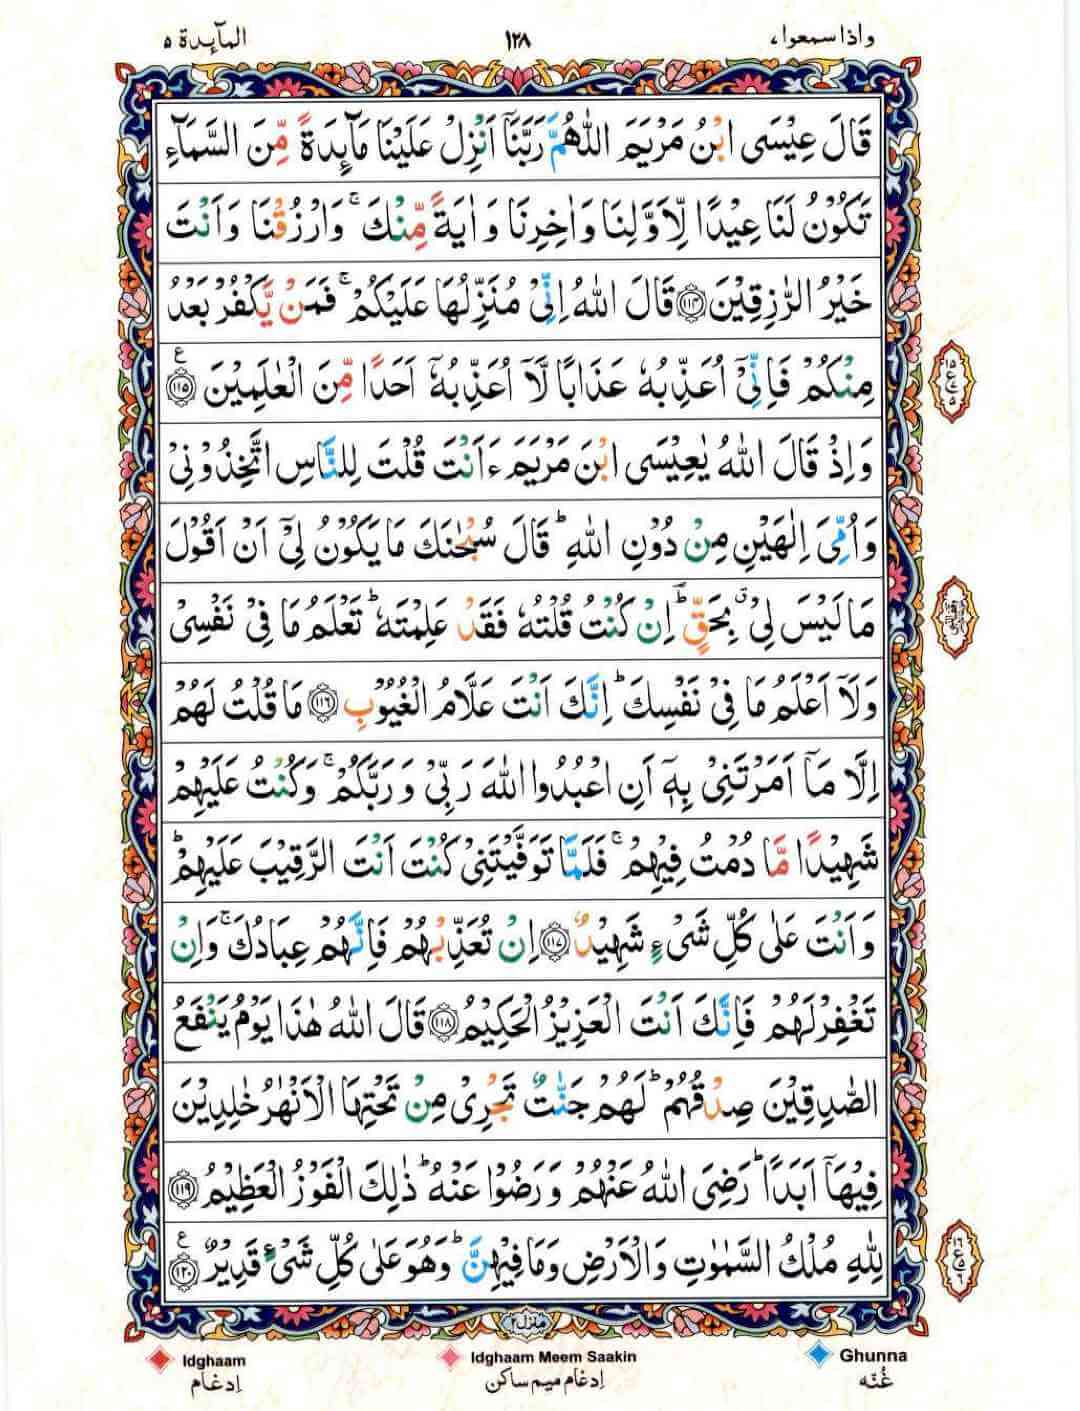 واذا سمعوا، ١٢٨ المآئدة ٥
قَالَ عِيْسَى ابْنُ مَرْيَمَ اللّٰهُمَّ رَبَّنَاۤ اَنْزِلْ عَلَيْنَا مَآئِدَةً مِّنَ السَّمَآءِ
تَكُوْنُ لَنَا عِيْدًا لِّاَوَّلِنَا وَاٰخِرِنَا وَاٰيَةً مِّنْكَ ۚ وَارْزُقْنَا وَاَنْتَ
خَيْرُ الرّٰزِقِيْنَ ﴿۱۱۴﴾ قَالَ اللّٰهُ اِنِّىْ مُنَزِّلُهَا عَلَيْكُمْ ۚ فَمَنْ يَّكْفُرْ بَعْدُ
مِنْكُمْ فَاِنِّىْۤ اُعَذِّبُهٗ عَذَابًا لَّاۤ اُعَذِّبُهٗۤ اَحَدًا مِّنَ الْعٰلَمِيْنَ ﴿۱۱۵﴾ ع
وَاِذْ قَالَ اللّٰهُ يٰعِيْسَى ابْنَ مَرْيَمَ ءَاَنْتَ قُلْتَ لِلنَّاسِ اتَّخِذُوْنِىْ
وَاُمِّىَ اِلٰهَيْنِ مِنْ دُوْنِ اللّٰهِ ؕ قَالَ سُبْحٰنَكَ مَا يَكُوْنُ لِىْۤ اَنْ اَقُوْلَ
مَا لَيْسَ لِىْ ۗ بِحَقٍّ ؕ اِنْ كُنْتُ قُلْتُهٗ فَقَدْ عَلِمْتَهٗ ؕ تَعْلَمُ مَا فِىْ نَفْسِىْ
وَلَاۤ اَعْلَمُ مَا فِىْ نَفْسِكَ ؕ اِنَّكَ اَنْتَ عَلَّامُ الْغُيُوْبِ ﴿۱۱۶﴾ مَا قُلْتُ لَهُمْ
اِلَّا مَاۤ اَمَرْتَنِىْ بِهٖۤ اَنِ اعْبُدُوا اللّٰهَ رَبِّىْ وَرَبَّكُمْ ۚ وَكُنْتُ عَلَيْهِمْ
شَهِيْدًا مَّا دُمْتُ فِيْهِمْ ۚ فَلَمَّا تَوَفَّيْتَنِىْ كُنْتَ اَنْتَ الرَّقِيْبَ عَلَيْهِمْ ؕ
وَاَنْتَ عَلٰى كُلِّ شَىْءٍ شَهِيْدٌ ﴿۱۱۷﴾ اِنْ تُعَذِّبْهُمْ فَاِنَّهُمْ عِبَادُكَ ۚ وَاِنْ
تَغْفِرْ لَهُمْ فَاِنَّكَ اَنْتَ الْعَزِيْزُ الْحَكِيْمُ ﴿۱۱۸﴾ قَالَ اللّٰهُ هٰذَا يَوْمُ يَنْفَعُ
الصّٰدِقِيْنَ صِدْقُهُمْ ؕ لَهُمْ جَنّٰتٌ تَجْرِىْ مِنْ تَحْتِهَا الْاَنْهٰرُ خٰلِدِيْنَ
فِيْهَاۤ اَبَدًا ؕ رَضِىَ اللّٰهُ عَنْهُمْ وَرَضُوْا عَنْهُ ؕ ذٰلِكَ الْفَوْزُ الْعَظِيْمُ ﴿۱۱۹﴾
لِلّٰهِ مُلْكُ السَّمٰوٰتِ وَالْاَرْضِ وَمَا فِيْهِنَّ ؕ وَهُوَ عَلٰى كُلِّ شَىْءٍ قَدِيْرٌ ﴿۱۲۰﴾ ع
منزل ٢
Idghaam Idghaam Meem Saakin Ghunna
اِدغام اِدغام میم ساکن غُنّه